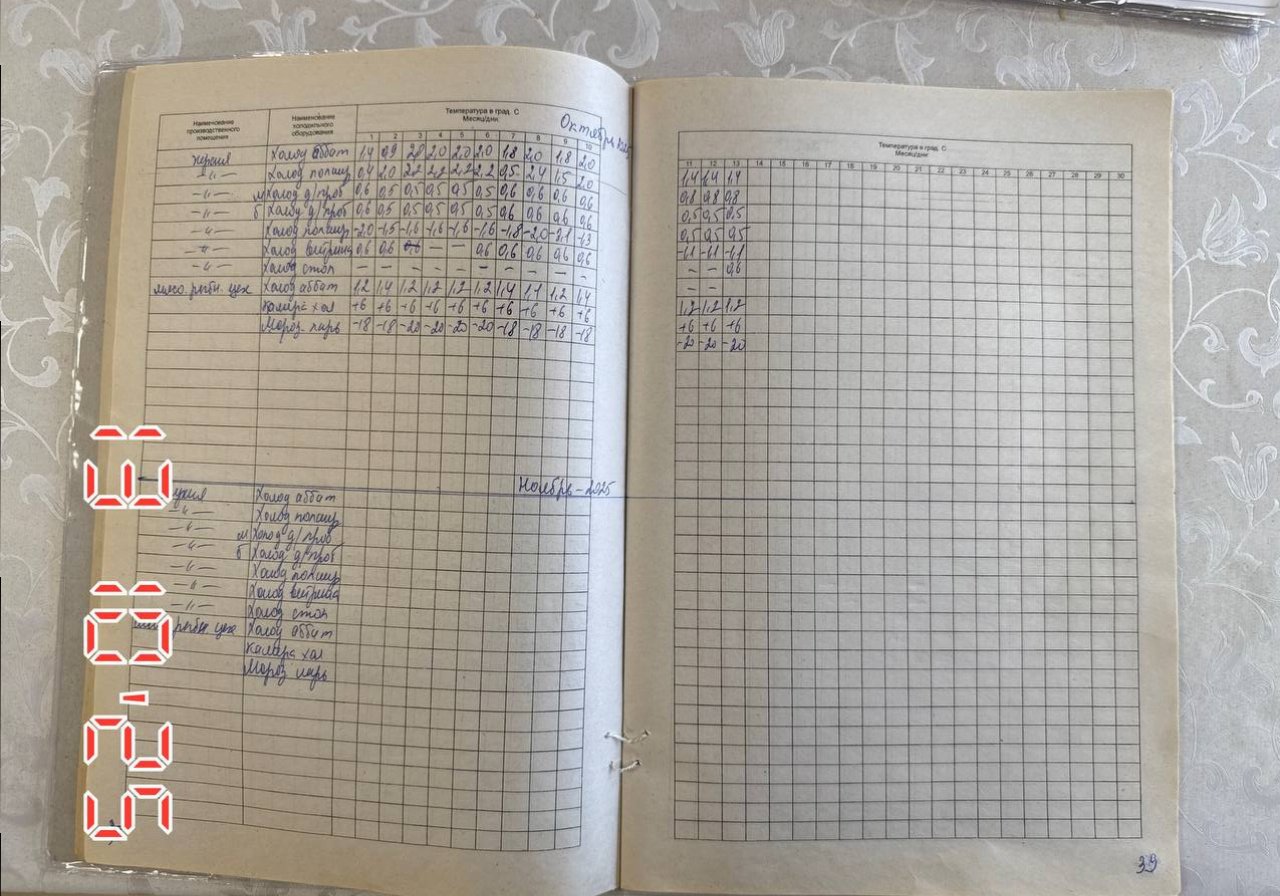 Наименование производственного помещения Наименование холодильного оборудования Температура в град. С Месяц/дни
Октябрь
1 2 3 4 5 6 7 8 9 10
кухня Холод аббат 1,4 0,9 2,0 2,0 2,0 1,8 2,0 1,8 2,0
-"- Холод полаир 0,4 2,0 2,2 2,2 2,2 2,2 0,5 2,4 1,5 2,0
-"- м Холод д/проб 0,6 0,5 0,5 0,5 0,5 0,5 0,6 0,6 0,6 0,6
-"- б Холод д/проб 0,6 0,5 0,5 0,5 0,5 0,5 0,6 0,6 0,6 0,6
-"- Холод полаир -2,0 -1,5 -1,6 -1,6 -1,6 -1,6 -1,8 -2,0 -2,1 -1,3
-"- Холод витрина 0,6 0,6 0,6 — — 0,6 0,6 0,6 0,6 0,6
-"- Холод стол — — — — — — — — — —
мясо. рыбн. цех Холод аббат 1,2 1,4 1,2 1,2 1,2 1,2 1,4 1,1 1,2 1,4
Камера хол +6 +6 +6 +6 +6 +6 +6 +6 +6 +6
Мороз ларь -18 -18 -20 -20 -20 -20 -18 -18 -18 -18
Ноябрь - 2025
кухня Холод аббат
-"- Холод полаир
-"- м Холод д/проб
-"- б Холод д/проб
-"- Холод полаир
-"- Холод витрина
-"- Холод стол
рыбн цех Холод аббат
Камера хол
Мороз ларь
Температура в град. С
Месяц/дни
11 12 13 14 15 16 17 18 19 20 21 22 23 24 25 26 27 28 29 30
1,4 1,4 1,4
0,8 0,8 0,8
0,5 0,5 0,5
0,5 0,5 0,5
-1,1 -1,1 -1,1
— — 0,6
— —
1,2 1,2 1,2
+6 +6 +6
-20 -20 -20
39
13 10 '25